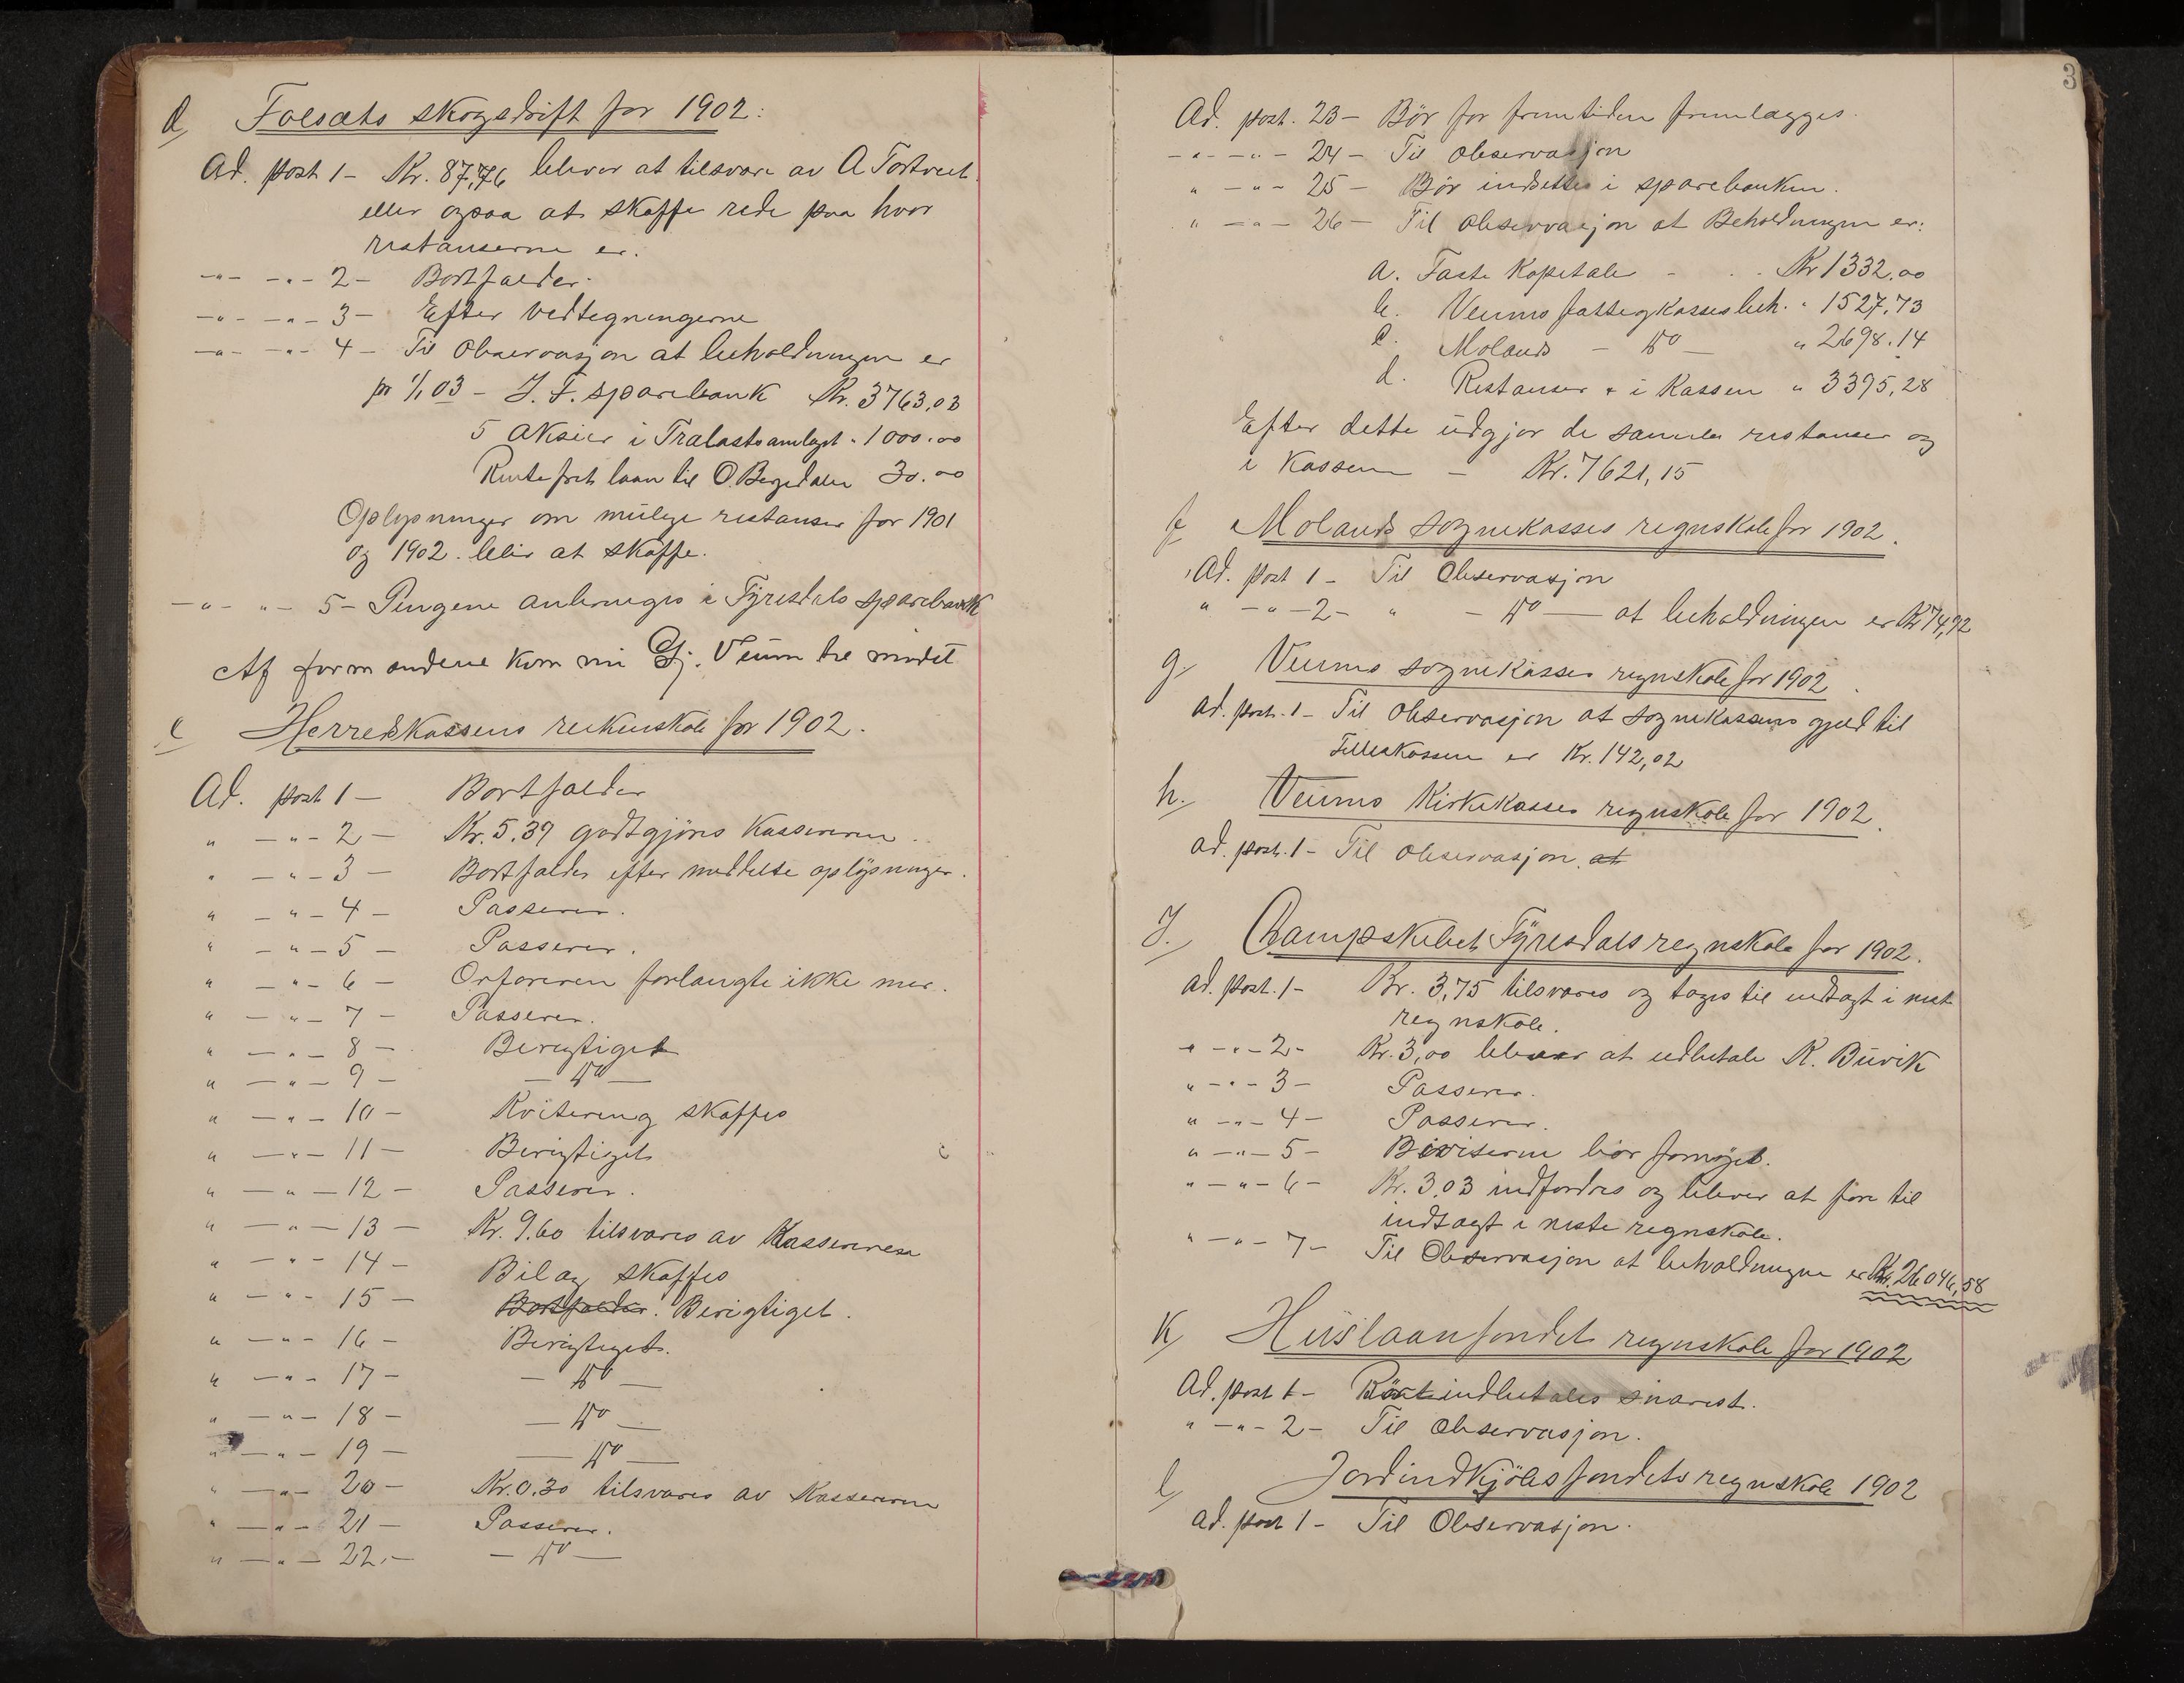 d/ Folsæts skogsdrift for 1902:
Ad. post 1 - Kr. 87,76 blever at tilsvare av A Tortveit
eller ogsaa at skaffe rede paa hvor
restanserne er.
-"- -"- 2 - Bortfalder.
-"- -"- 3 - Efter vedtegningerne
-"- -"- 4 - Til Observasjon at beholdningen er
pr 1/1 03 - I. F. sparebank Kr. 3763,03
5 Aksier i Tralastsamlaget " 1000.00
Rentefrit laan til O. Bergdalen 30.00
Oplysninger om mulige restanser for 1901
og 1902. blir at skaffe.
-"- "- 5 - Pengene anbringes i Tyresdals sparebank
Af formændene kom nu Gj. Veum til mødet
e/ Herredskassens reikenskab for 1902.
Ad. post 1 - Bortfalder
" -"- 2 - Kr. 5.39 godtgjöres Kassereren
" -"- 3 - Bortfalder efter meddelte oplysninger.
" -"- 4 - Passerer.
" -"- 5 - Passerer.
" -"- 6 - Ordföreren forlangte ikke mer.
" -"- 7 - Passerer.
" -"- 8 - Berigtiget
" -"- 9 - - do -
" -"- 10 - Kvitering skaffes
" -"- 11 - Berigtiget
" -"- 12 - Passerer.
" -"- 13 - Kr. 9.60 tilsvares av Kassereren
" -"- 14 - Bilag skaffes
" -"- 15 - Bortfalder. Berigtiget.
" -"- 16 - Berigtiget.
" -"- 17 - - do -
" -"- 18 - - do -
" -"- 19 - - do -
" -"- 20 - Kr. 0.30 tilsvares av Kassereren
" -"- 21 - Passerer.
" -"- 22. - - do -
3
Ad. post. 23 - Bör for fremtiden fremlægges.
-"- -"- 24 - Til Observasjon
" -"- 25 - Bör indsettes i sparebanken.
" -"- 26 - Til Observasjon at Beholdningen er:
a. Faste Kapitaler - Kr 1332.00
b. Veums fattigkasses beh. " 1527,73
c. Molands - do - " 2698.14
d. Restanser & i Kassen " 3395,28
Efter dette udgjör de samlede restanser og
i Kassen - Kr. 7621,15
f Molands sognekasses regnskab for 1902.
Ad. post 1 - Til Observasjon
" -"- 2 - " - do - at beholdningen er Kr 74,92
g. Veums sognekasses regnskab for 1902.
ad. post. 1 - Til Observasjon at sognekassens gjeld til
Felleskassen er Kr. 142,02
h. Veums Kirkekasses regnskab for 1902.
ad. post. 1 - Til Observasjon at
J. Dampskibet Tyresdals regnskab for 1902.
ad. post. 1 - Kr. 3,75 tilsvares og tages til indtægt i nest
regnskab.
" -"- 2 - Kr. 3,00 blever at udbetale K. Buvik
" -"- 3 - Passerer.
" -"- 4 - Passerer.
" -"- 5 - Beviserne bör fornøiet.
" -"- 6 - Kr. 3.03 indfordres og blever at före til
indtægt i neste regnskab.
" -"- 7 - Til Observasjon at beholdningen er Kr. 26046,58
K/ Huslaanfondet regnskab for 1902
Ad. post 1 - Bör indbetales snarest.
" -"- 2 - Til Observasjon.
l/ Jordindkjöbsfondets regnskab 1902
ad. post 1 - Til Observasjon.